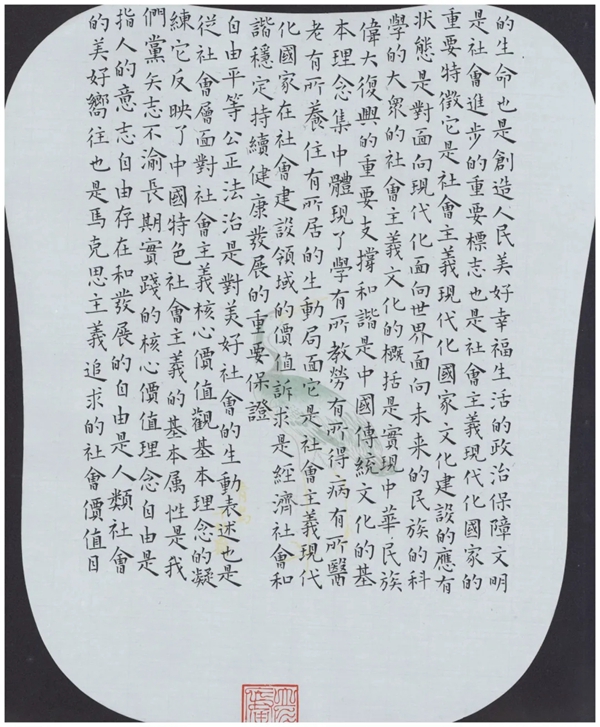 的生命也是創造人民美好幸福生活的政治保障文明
是社會進步的重要標志也是社會主義現代化國家的
重要特徵它是社會主義現代化國家文化建設的應有
狀態是對面向現代化面向世界面向未来的民族的科
學的大衆的社會主義文化的概括是實現中華民族
偉大復興的重要支撐和諧是中國傳統文化的基
本理念集中體現了學有所教勞有所得病有所醫
老有所養住有所居的生動局面它是社會主義現代
化國家在社會建設領域的價值訴求是經濟社會和
諧穩定持續健康發展的重要保證
自由平等公正法治是對美好社會的生動表述也是
從社會層面對社會主義核心價值觀基本理念的凝
練它反映了中國特色社會主義的基本属性是我
們黨矢志不渝長期實踐的核心價值理念自由是
指人的意志自由存在和發展的自由是人類社會
的美好嚮往也是馬克思主義追求的社會價值目